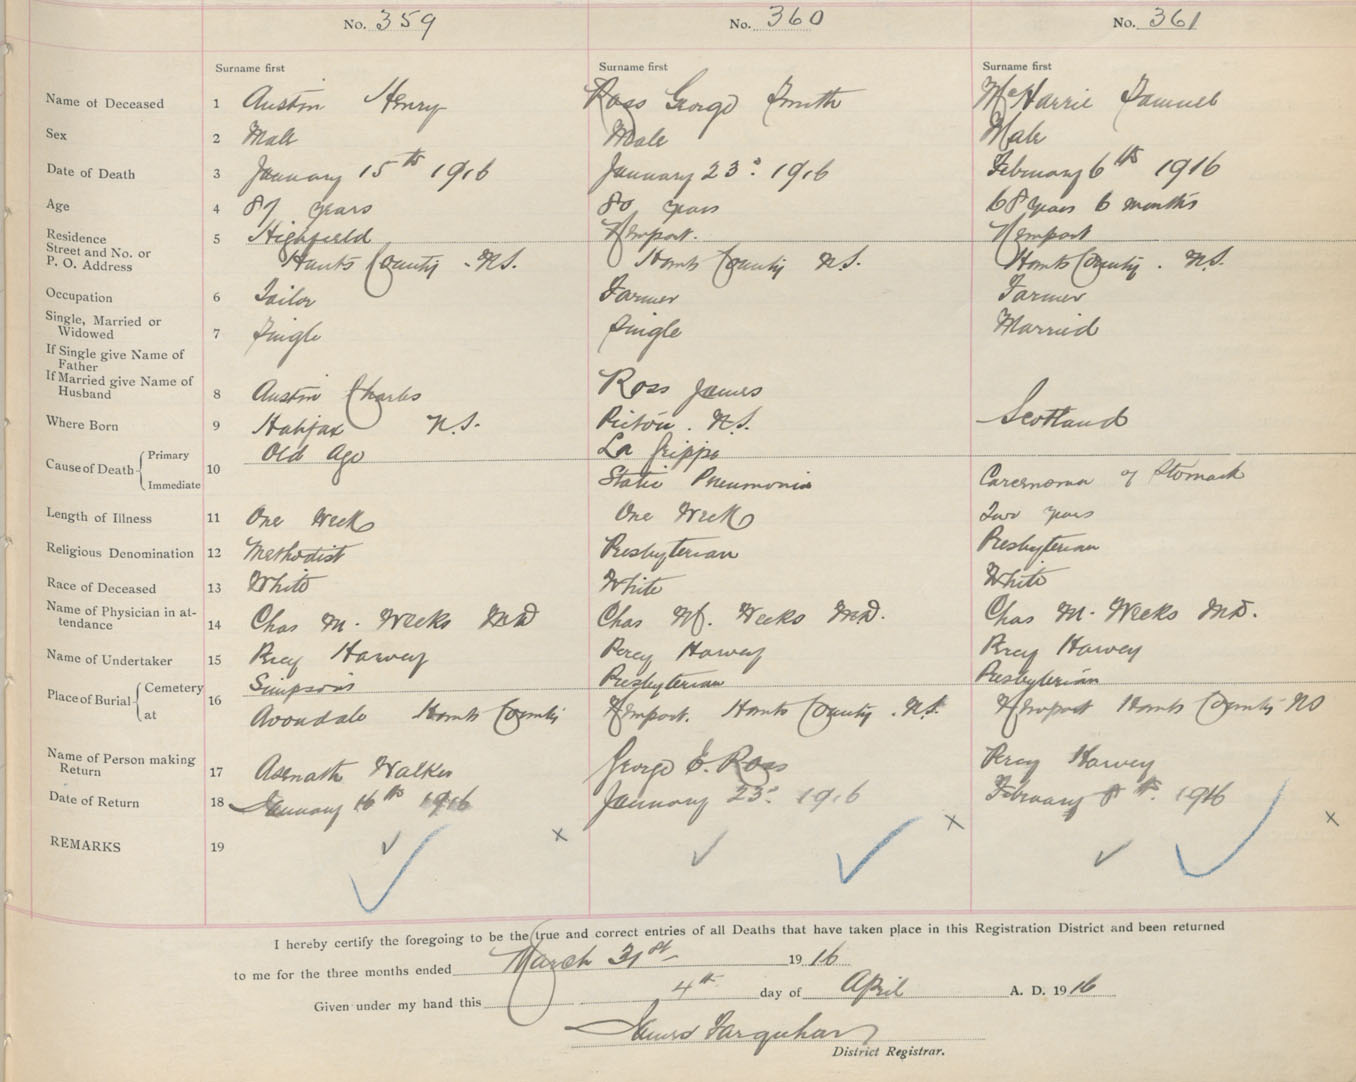 No. 359 No. 360 No. 361
Surname first Surname first Surname first
Name of Deceased 1 Austin Henry Ross George Smith McHarrie Samuel
Sex 2 Male Male Male
Date of Death 3 January 15th 1916 January 23d 1916 February 6th 1916
Age 4 87 years 80 years 68 years 6 months
Residence 5 Highfield Newport. Newport
Street and No. or
P. O. Address Hants County . N.S. Hants County N.S. Hants County . N.S.
Occupation 6 Tailor Farmer Farmer
Single, Married or
Widowed 7 Single Single Married
If Single give Name of
Father
If Married give Name of
Husband 8 Austin Charles Ross James
Where Born 9 Halifax N.S. Pictou . N.S. Scotland
Cause of Death Primary 10 Old Age La Grippe
Immediate Static Pneumonia Carcenoma of Stomach
Length of Illness 11 One Week One Week Two years
Religious Denomination 12 Methodist Presbyterian Presbyterian
Race of Deceased 13 White White White
Name of Physician in at-
tendance 14 Chas M. Weeks MD Chas M. Weeks M.D. Chas M. Weeks M.D.
Name of Undertaker 15 Percy Harvey Percy Harvey Percy Harvey
Place of Burial Cemetery 16 Simpson's Presbyterian Presbyterian
at Avondale Hants County Newport. Hants County . N.S. Newport Hants County NS
Name of Person making
Return 17 Asenath Walker George E. Ross Percy Harvey
Date of Return 18 January 16th 1916 January 23d 1916 February 8th. 1916
REMARKS 19 ✓ ✓ x ✓ ✓ x ✓ ✓ x
I hereby certify the foregoing to be the true and correct entries of all Deaths that have taken place in this Registration District and been returned
to me for the three months ended March 31st 1916
Given under my hand this 4th day of April A. D. 1916
James Farquhar
District Registrar.